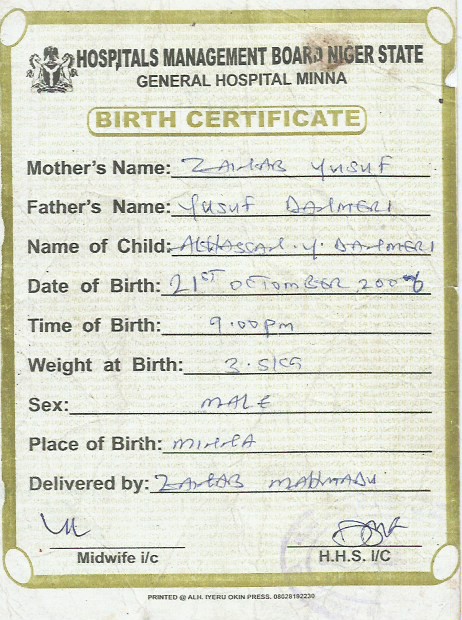 HOSPITALS MANAGEMENT BOARD NIGER STATE
GENERAL HOSPITAL MINNA
BIRTH CERTIFICATE
Mother's Name: ZAINAB YUSUF
Father's Name: YUSUF
Name of Child: ALHASSAN . Y.
Date of Birth: 21ST OCTOMBER
Time of Birth: 9.00pm
Weight at Birth: 3.5KG
Sex: MALE
Place of Birth: MINNA
Delivered by: ZAINAB
Midwife i/c H.H.S. I/C
PRINTED @ ALH. IYERU OKIN PRESS. 08028192230